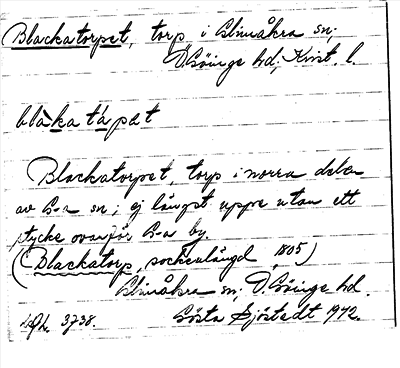 Blackatorpet, torp i Glimåkra sn;
Ö. Göinge hd; Krist. l.
blàka tå̀pæt
Blackatorpet, torp i norra delen
av G-a sn; ej längst uppe utan ett
stycke ovanför G-a by
(Blackatorp, sockenlängd 1805)
Glimåkra sn; Ö. Göinge hd.
3738. Gösta Sjöstedt 1942.